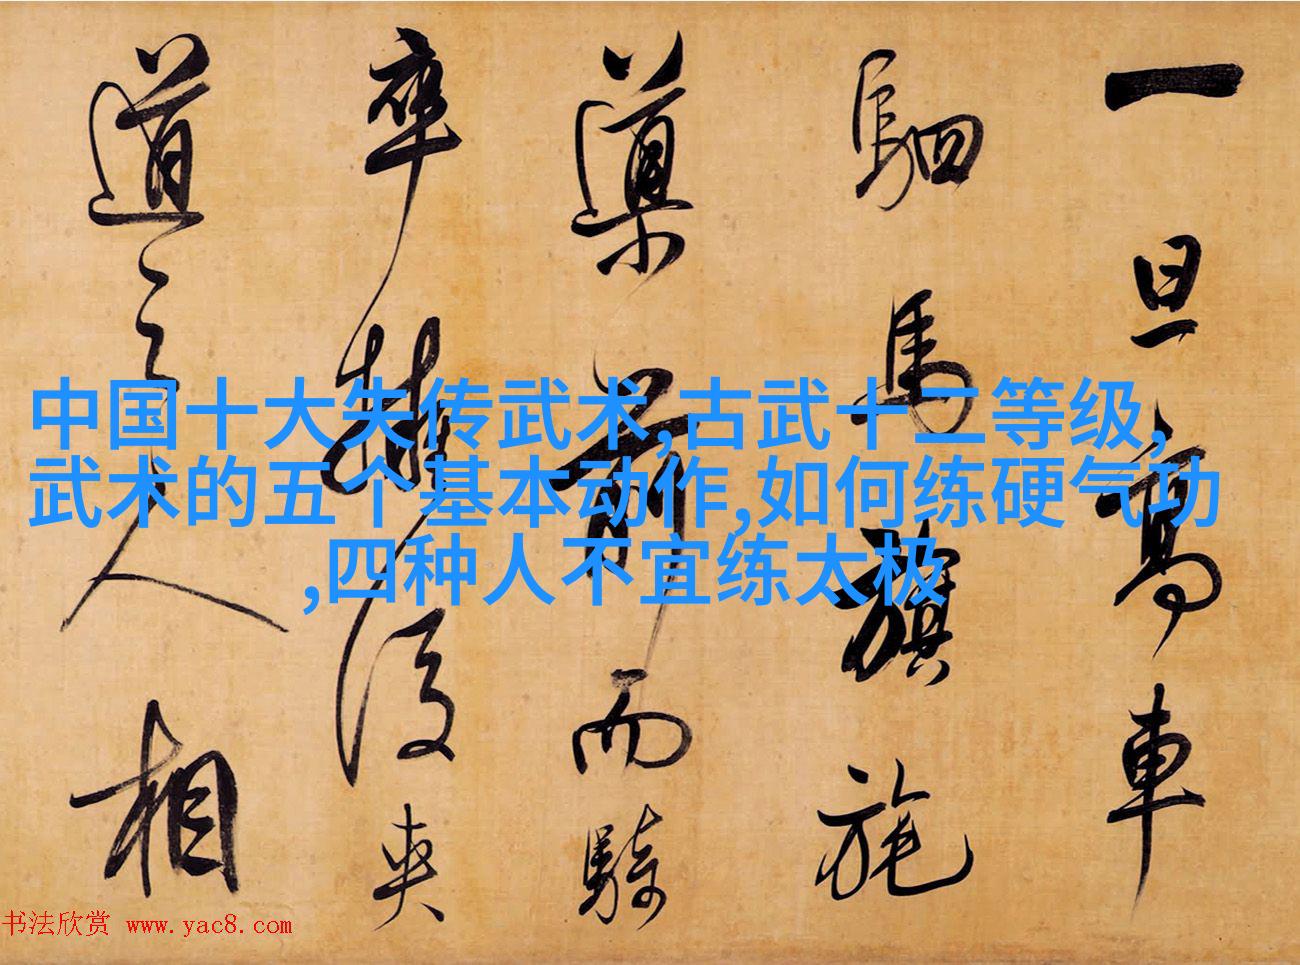 一旦高車
駟馬旗旄
導前而騎
卒擁後夾
道之人相
中国十大失传武术,古武十二等级,
武术的五个基本动作,如何练硬气功
,四种人不宜练太极
书法欣赏 www.yac8.com